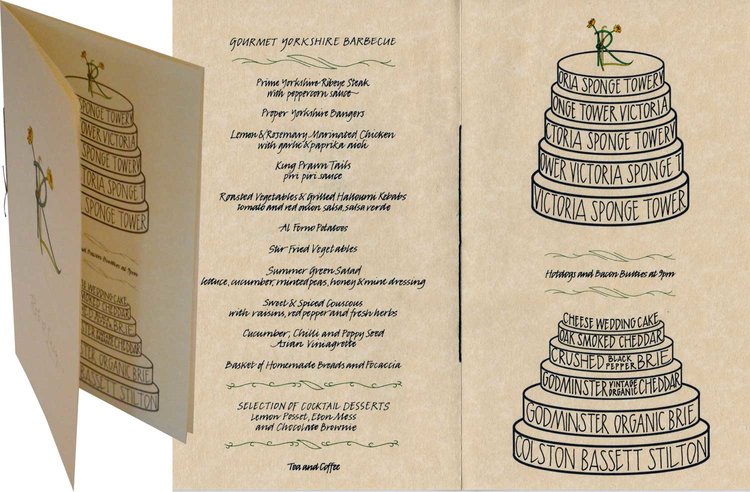 R
SPONGE TOWERY
OWER VICTORIA
SPONGE TOWER
IA SPONGE T
SPONGE TOWER
R
SE WEDDING CAKE
SMOKED CHEDDAR
BRIE
CHEDDAR
ORGANIC BRIE
BASSETT STILTON
GOURMET YORKSHIRE BARBECUE
Prime Yorkshire Ribeye Steak
with peppercorn sauce
Proper Yorkshire Bangers
Lemon & Rosemary Marinated Chicken
with garlic & paprika aioli
King Prawn Tails
piri piri sauce
Roasted Vegetables & Grilled Halloumi Kebabs
tomato and red onion salsa, salsa verde
Al Forno Potatoes
Stir Fried Vegetables
Summer Green Salad
lettuce, cucumber, minted peas, honey & mint dressing
Sweet & Spiced Couscous
with raisins, red pepper and fresh herbs
Cucumber, Chilli and Poppy Seed
Asian Vinaigrette
Basket of Homemade Breads and Focaccia
SELECTION OF COCKTAIL DESSERTS
Lemon Posset, Eton Mess
and Chocolate Brownie
Tea and Coffee
R
ORIA SPONGE TOWER V
ONGE TOWER VICTORIA
CTORIA SPONGE TOWER
OWER VICTORIA SPONGE T
VICTORIA SPONGE TOWER
Hotdogs and Bacon Butties at 9pm
CHEESE WEDDING CAKE
OAK SMOKED CHEDDAR
CRUSHED BLACK PEPPER BRIE
GODMINSTER VINTAGE ORGANIC CHEDDAR
GODMINSTER ORGANIC BRIE
COLSTON BASSETT STILTON